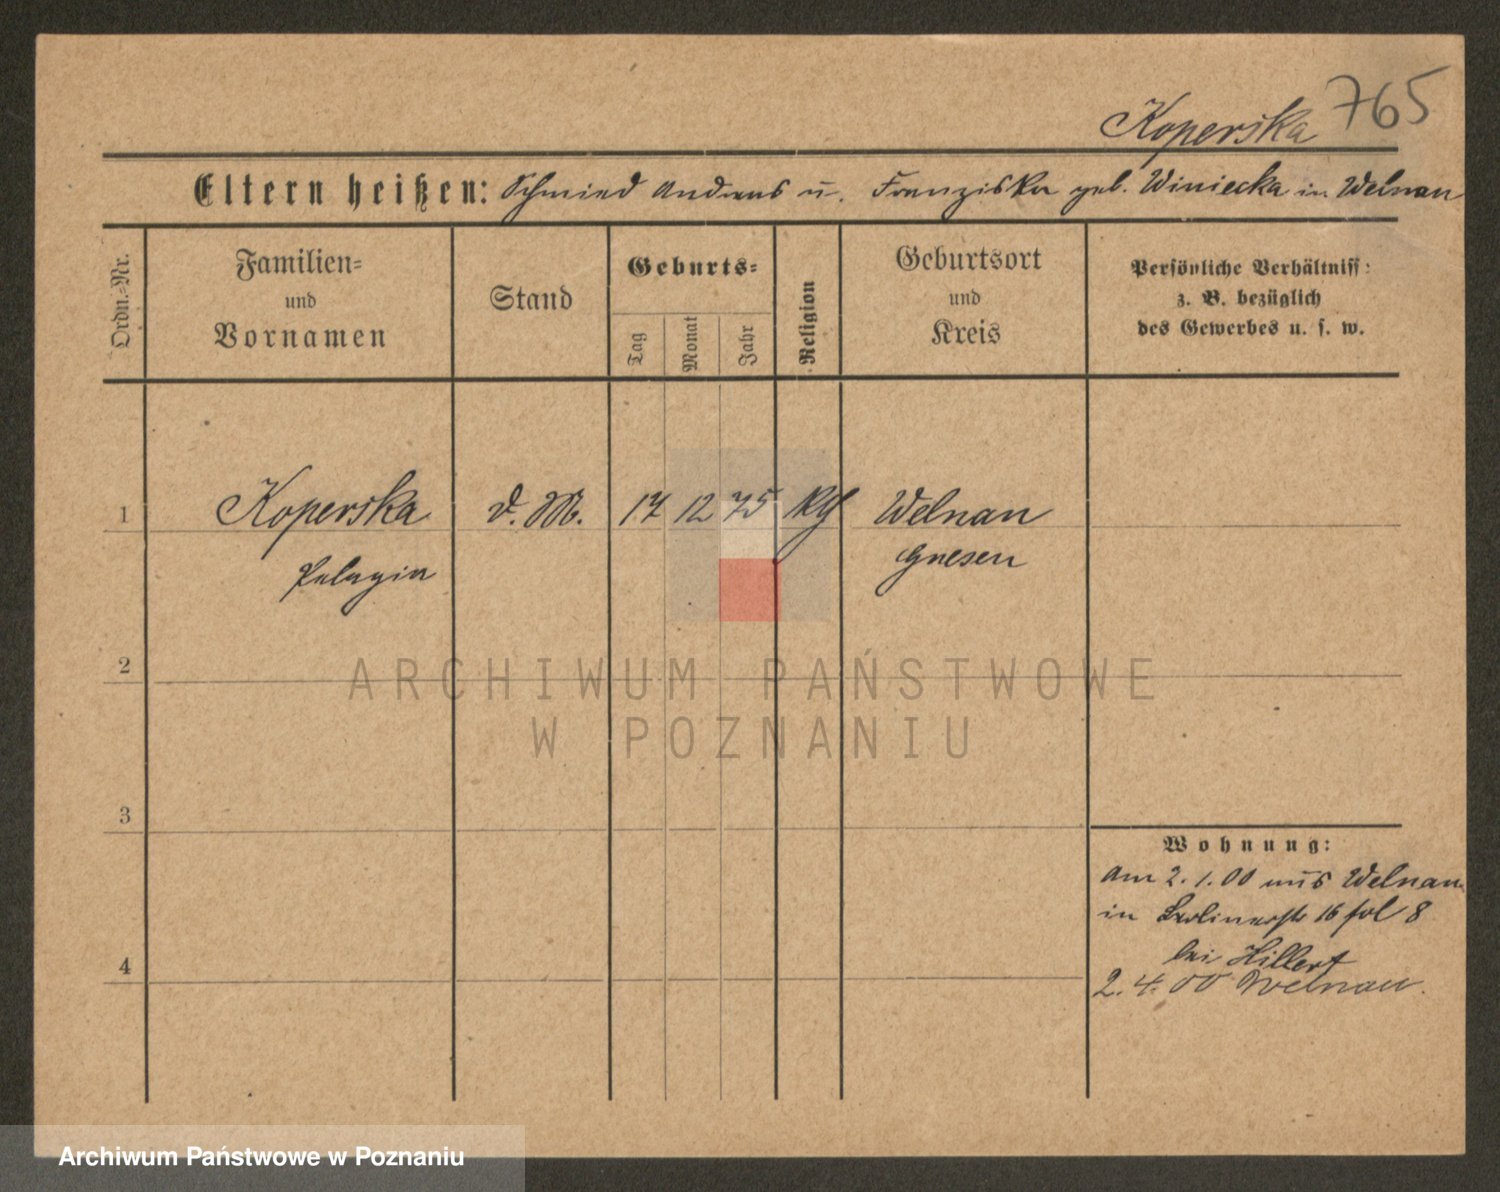 Koperska 765
Eltern heißen: Schmied Andreas u. Franziska geb. Winiecka in Welnau
Ordn.-Nr.
Familien-
und
Vornamen
Stand
Geburts-
Tag
Monat
Jahr
Religion
Geburtsort
und
Kreis
Persönliche Verhältniss:
z. B. bezüglich
des Gewerbes u. s. w.
1 Koperska d. M. 17 12 75 kth Welnau
Pelagia Gnesen
2
ARCHIWUM PAŃSTWOWE
W POZNANIU
3
Wohnung:
am 2.1.00 aus Welnau
in Berlinerstr 16 fol 8
bei Hillert
4
2.4.00 Welnau.
Archiwum Państwowe w Poznaniu